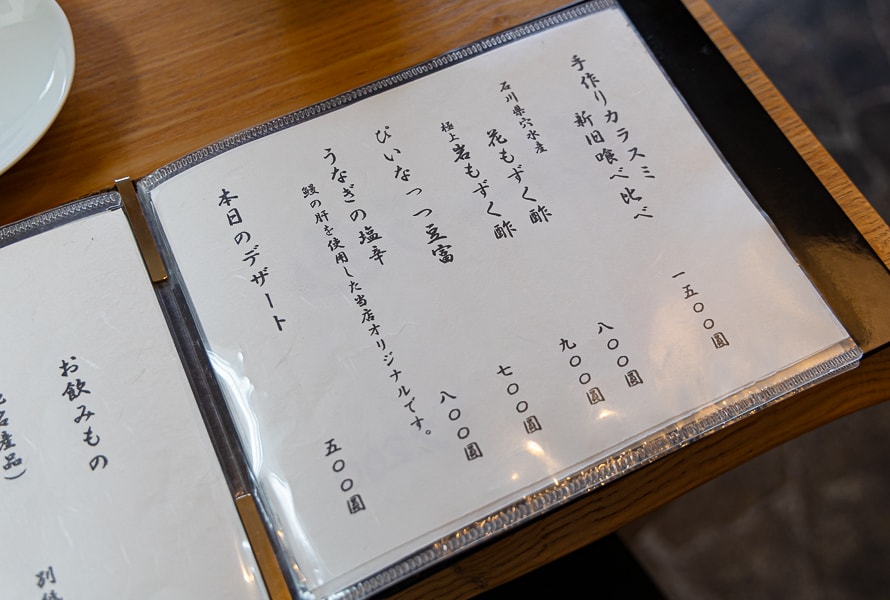 手作りカラスミ
新旧喰べ比べ
一五〇〇圓
石川県穴水産
花もずく酢
八〇〇圓
極上岩もずく酢
九〇〇圓
ぴいなっつ豆富
七〇〇圓
うなぎの塩辛
八〇〇圓
鰻の肝を使用した当店オリジナルです。
本日のデザート
五〇〇圓
お飲みもの
別紙
名産品）